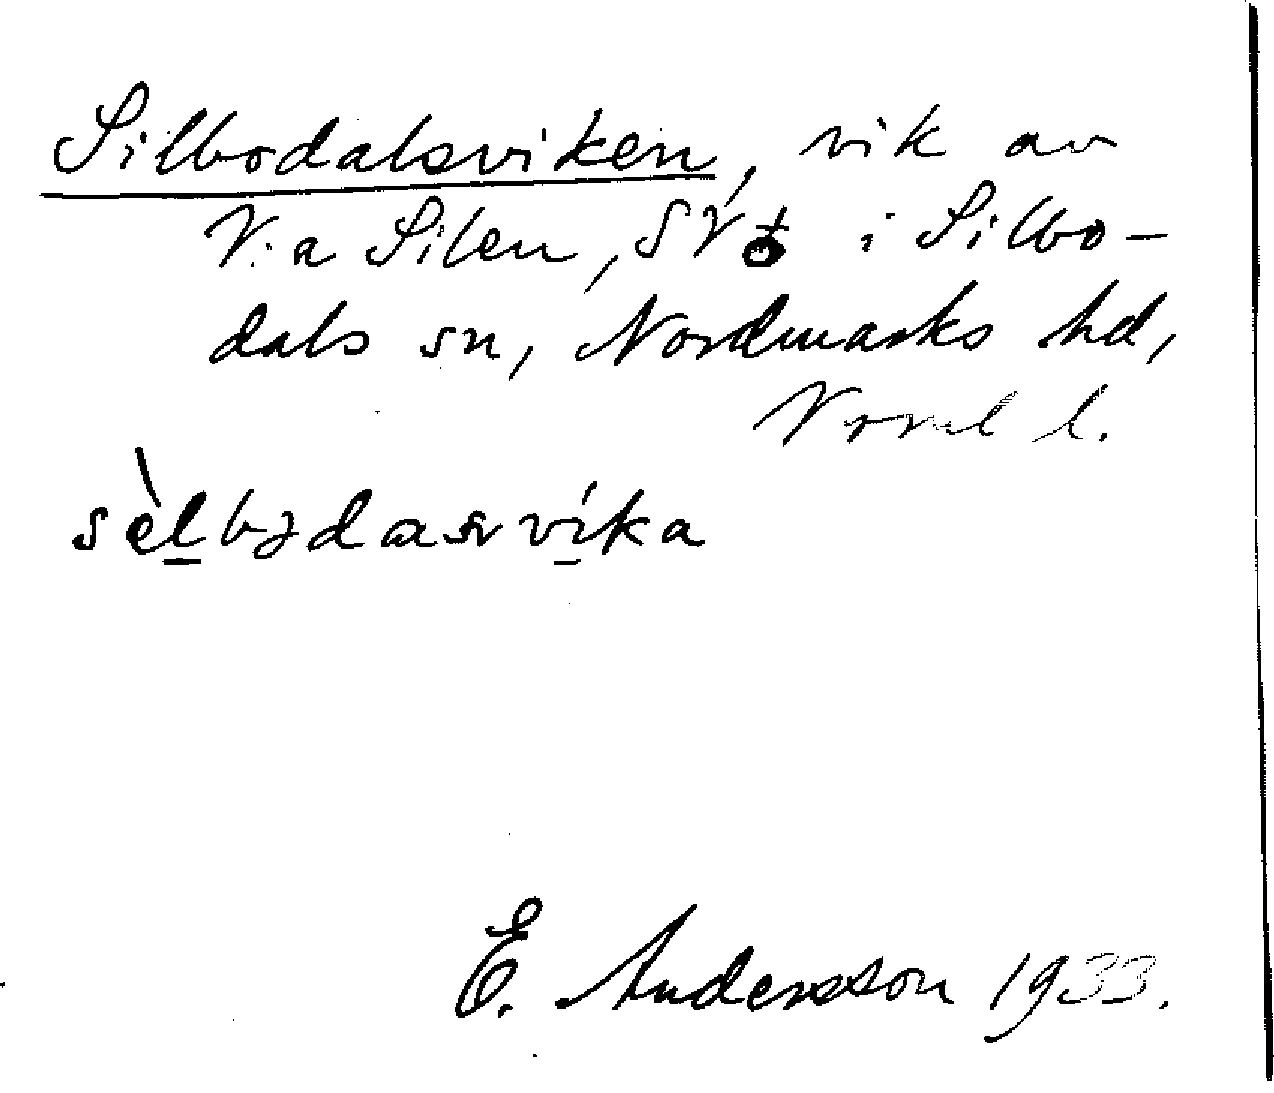 Silbodalsviken, vik av
V:a Silen, SV i Silbo-
dals sn, Nordmarks hd,
Verml l.
sèlbɔdasvíka
E. Andersson 1933.